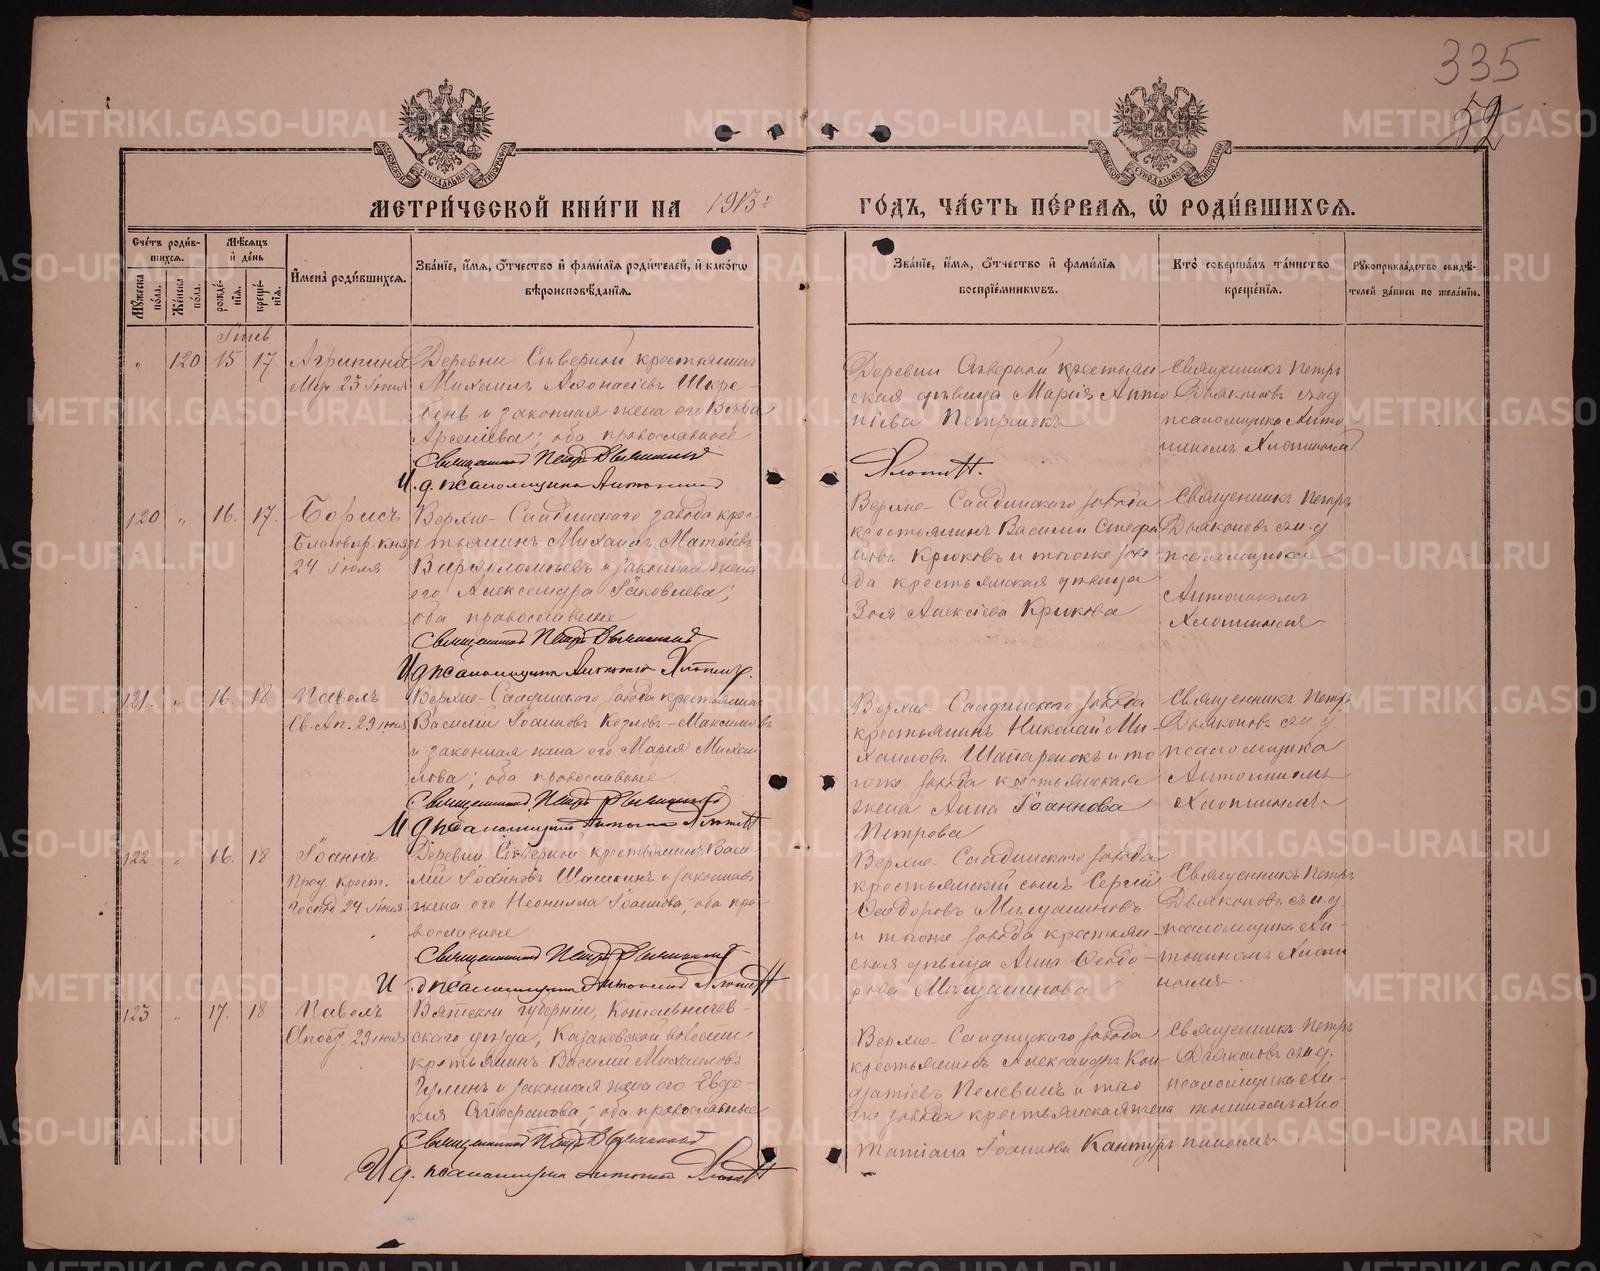 335
52
МЕТРИ́ЧЕСКОЙ КНИ́ГИ НА 1913 г.
ГО́ДЪ, ЧА́СТЬ ПЕ́РВАЯ, Ѡ҆ РОДИ́ВШИХСЯ.
Сче́тъ роди́в-
шихся.
Мꙋ́жеска по́ла.
Же́нска по́ла.
Мѣ́сяцъ
и҆ де́нь
рожде́-
нїя.
креще́-
нїя.
И҆мена̀ роди́вшихся.
Зва́нїе, и҆́мя, ѻ҆́тчество и҆ фами́лїя роди́телей, и҆ како́гѡ
вѣроисповѣ́данїя.
Зва́нїе, и҆́мя, ѻ҆́тчество и҆ фами́лїя
воспрїе́мникѡвъ.
Кто̀ соверша́лъ та́инство
креще́нїя.
Рꙋкоприкла́дство свидѣ́-
телей за́писи по жела́нїю.
Іюнь
" 120 15 17 Агрипина
Муч. 23 Іюня
Деревни Сѣверной крестьянинъ
Михаилъ Аѳонасіевъ
и законная жена его
Арсеніева; оба православные
Священникъ Петръ Дьяконовъ
И. д. псаломщика Антонинъ
Деревни Сѣверной крестьян
ская дѣвица Марія Анто
ніева
Священникъ Петръ
Дьяконовъ съ и д
псаломщика Анто
ниномъ Хлопинымъ
120 " 16. 17. Борисъ
Благовѣр. князя
24 Іюля
Верхне-Салдинскаго завода крес-
тьянинъ Михаилъ Матѳіевъ
Варѳоломѣевъ и законная жена
его Александра Іаковлева;
оба православные
Священникъ Петръ Дьяконовъ
И д псаломщика Антонинъ Хлопинъ.
Верхне-Салдинскаго завода
крестьянинъ Василій Стефа
новъ Крюковъ и тогоже заво
да крестьянская дѣвица
Зоя Алексіева Крюкова
Священникъ Петръ
Дьяконовъ съ и. д
псаломщика
Антониномъ
Хлопинымъ
121. " 16. 18 Павелъ
Св. Ап. 29 іюня
Верхне-Салдинскаго завода крестьянинъ
Василій Іоанновъ Козловъ-Максимовъ
и законная жена его Марія Михаи
лова; оба православные
Священникъ Петръ Дьяконовъ
И д псаломщика Антонинъ Хлопинъ
Верхне-Салдинскаго завода
крестьянинъ Николай Ми-
хаиловъ и то
гоже завода крестьянская
жена Анна Іоаннова
Петрова
Священникъ Петръ
Дьяконовъ съ и д
псаломщика
Антониномъ
Хлопинымъ
122 " 16. 18 Іоаннъ
Пред. Крест.
Господ 24 Іюня
Деревни Сѣверной крестьянинъ Васи
лій Іоанновъ и законная
жена его Неонилла Іоаннова; оба пра-
вославные
Священникъ Петръ Дьяконовъ
И д псаломщика Антонинъ Хлопинъ
Верхне-Салдинскаго завода
крестьянскій сынъ Сергій
Ѳеодоровъ
и тогоже завода крестьян-
ская дѣвица Анна Ѳеодо-
рова
Священникъ Петръ
Дьяконовъ съ и. д
псаломщика Ан-
тониномъ Хлопи
нымъ.
123 " 17. 18 Павелъ
Апост. 29 іюня
Вятской губерніи, Котельничев-
скаго уѣзда, Казаковской волости
крестьянинъ Василій Михаиловъ
и законная жена его Евдо-
кія; оба православные
Священникъ Петръ Дьяконовъ
И д. псаломщика Антонинъ Хлопинъ
Верхне-Салдинскаго завода
крестьянинъ Александръ Кон-
дратіевъ Пелевинъ и того
же завода крестьянская жена
Татіана Іоаннова Кантуръ
Священникъ Петръ
Дьяконовъ съ и д.
псаломщика Ан-
тониномъ Хло
пинымъ
METRIKI.GASO-URAL.RU